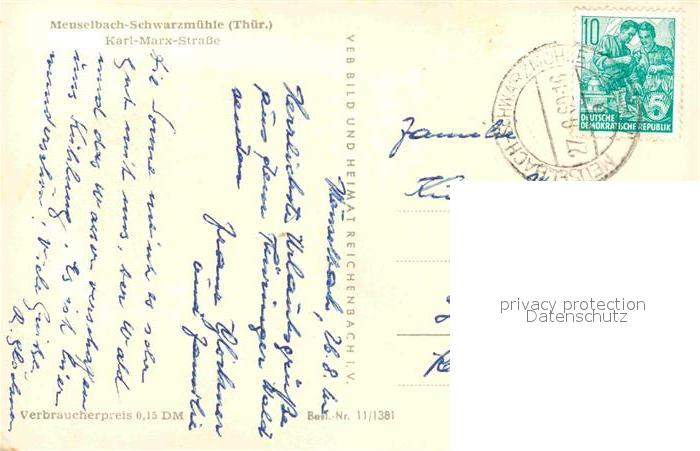 Meuselbach-Schwarzmühle (Thür.)
Karl-Marx-Straße
VEB BILD UND HEIMAT REICHENBACH I. V.
Meuselbach, 26.8.60
Herzlichste Urlaubsgrüße
aus dem Thüringer Wald
senden
Franz Glöckner
und Familie
Die Sonne meint es sehr
gut mit uns, der Wald
und das Wasser verschaffen
uns Kühlung. Es ist hier
wunderschön! Viele Grüße
R. Glöckner
Verbraucherpreis 0,15 DM
Best.-Nr. 11/1381
10
5
DEUTSCHE
DEMOKRATISCHE REPUBLIK
MEUSELBACH-SCHWARZMÜHLE
27.8.60
Familie
privacy protection
Datenschutz